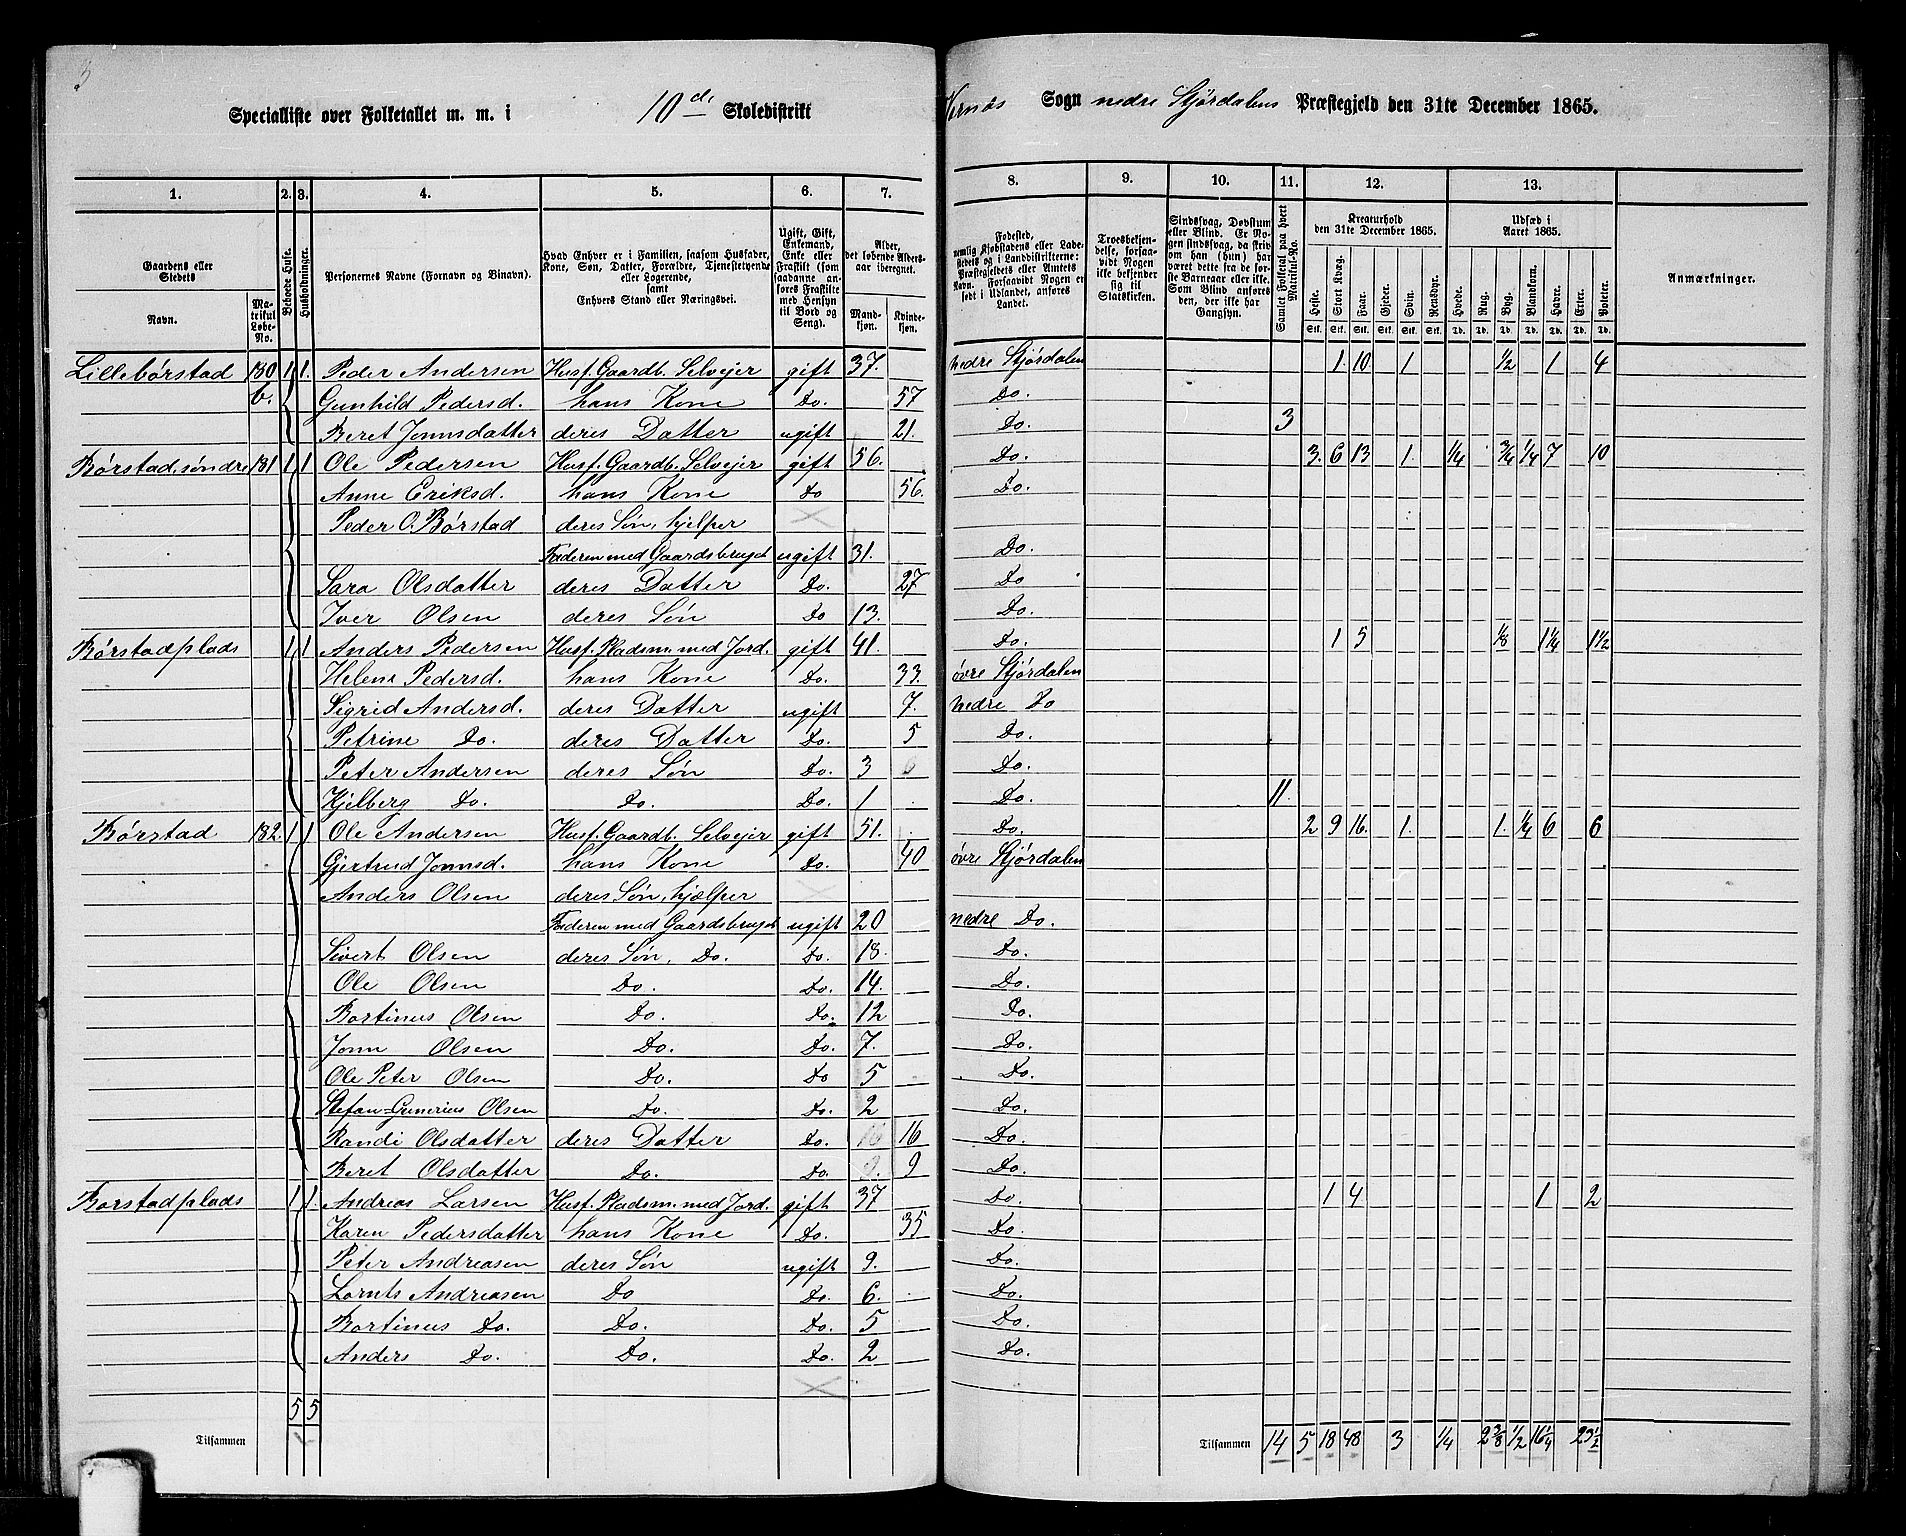 3
Specialliste over Folketallet m. m. i 10de Skoledistrikt
Værnæs Sogn nedre Stjørdalens Præstegjeld den 31te December 1865.
1. 2. 3. 4. 5. 6. 7. 8. 9. 10. 11. 12. 13.
Gaardens eller Stedets Navn.
Matrikul Løbe-No.
Beboede Huse.
Husholdninger.
Personernes Navne (Fornavn og Binavn).
Hvad Enhver er i Familien, saasom Husfader, Kone, Søn, Datter, Forældre, Tjenestetyende eller Logerende, samt Enhvers Stand eller Næringsvei.
Ugift, Gift, Enkemand, Enke eller Fraskilt (saadanne anføres Fraskilte med Hensyn til Bord og Seng).
Alder, det løbende Alders-aar iberegnet.
Mandkjøn. Kvindekjøn.
Fødested, nemlig Kjøbstadens eller Ladestedets og i Landdistrikterne: Præstegjeldets eller Amtets Navn. Forsaavidt Nogen er født i Udlandet, anføres Landet.
Troesbekjendelse, forsaavidt Nogen ikke bekjender sig til Statskirken.
Sindssvag, Døvstum eller Blind. Er Nogen sindssvag, da skriv om han (hun) har været dette fra de første Barneaar eller ikke. Som Blind anføres den, der ikke har Gangsyn.
Samlet Folketal paa hvert Matrikul-No.
Kreaturhold den 31te December 1865.
Heste. Stort Kvæg. Faar. Gjeder. Svin. Rensdyr.
Udsæd i Aaret 1865.
Hvede. Rug. Byg. Blandkorn. Havre. Erter. Poteter.
Anmærkninger.
Lillebørstad 180 b. 1 1. Peder Andersen Husf. Gaardb. Selvejer gift 37. nedre Stjørdalen 1 10 1 1/2 1 4
Gunhild Pedersd. hans Kone Do. 57 Do.
Beret Jonnsdatter deres Datter ugift 21. Do. 3
Børstad, søndre 181 1 1 Ole Pedersen Husf. Gaardb. Selvejer gift 56. Do. 3. 6 13 1. 1/4 3/4 1/4 7 10
Anne Eriksd. hans Kone Do 56. Do.
Peder O. Børstad deres Søn, hjelper
Faderen med Gaardsbruget ugift 31. Do.
Sara Olsdatter deres Datter Do. 27 Do
Iver Olsen deres Søn Do 13. Do.
Børstadplads 1 1 Anders Pedersen Husf. Pladsm. med Jord. gift 41. Do. 1 5 1/8 1 1/4 1 1/2
Helene Pedersd. hans Kone Do. 33. øvre Stjørdalen
Sigrid Andersd. deres Datter ugift 7. nedre Do
Petrine Do. deres Datter Do. 5 Do.
Peter Andersen deres Søn Do. 3 Do.
Hjelberg Do. Do. Do. 1 Do. 11.
Børstad 182. 1 1 Ole Andersen Husf. Gaardb. Selvejer gift 51. Do. 2 9 16. 1. 1. 1/4 6 6
Gjertrud Jonnsd. hans Kone Do. 40 øvre Stjørdalen
Anders Olsen deres Søn, hjælper
Faderen med Gaardsbruget ugift 20 nedre Do.
Sivert Olsen deres Søn, Do. Do. 18. Do.
Ole Olsen Do. Do. 14. Do.
Bortinus Olsen Do. Do. 12 Do.
Jonn Olsen Do. Do. 7. Do.
Ole Peter Olsen Do. Do 5 Do.
Stefan-Gunerius Olsen Do. Do. 2 Do.
Randi Olsdatter deres Datter Do. 16 Do.
Beret Olsdatter Do. Do. 9 Do.
Børstadplads 1 1. Andreas Larsen Husf. Pladsm. med Jord. gift 37 Do. 1 4 1 2
Karen Pedersdatter hans Kone Do. 35 Do.
Peter Andreasen deres Søn ugift 9. Do.
Lornts Andreasen Do Do. 6. Do.
Bortinus Do. Do. Do. 5 Do.
Anders Do. Do. Do. 2 Do.
5 5
Tilsammen
Tilsammen 14 5 18 48 3 1/4 2 3/8 1/2 16 1/4 23 1/2